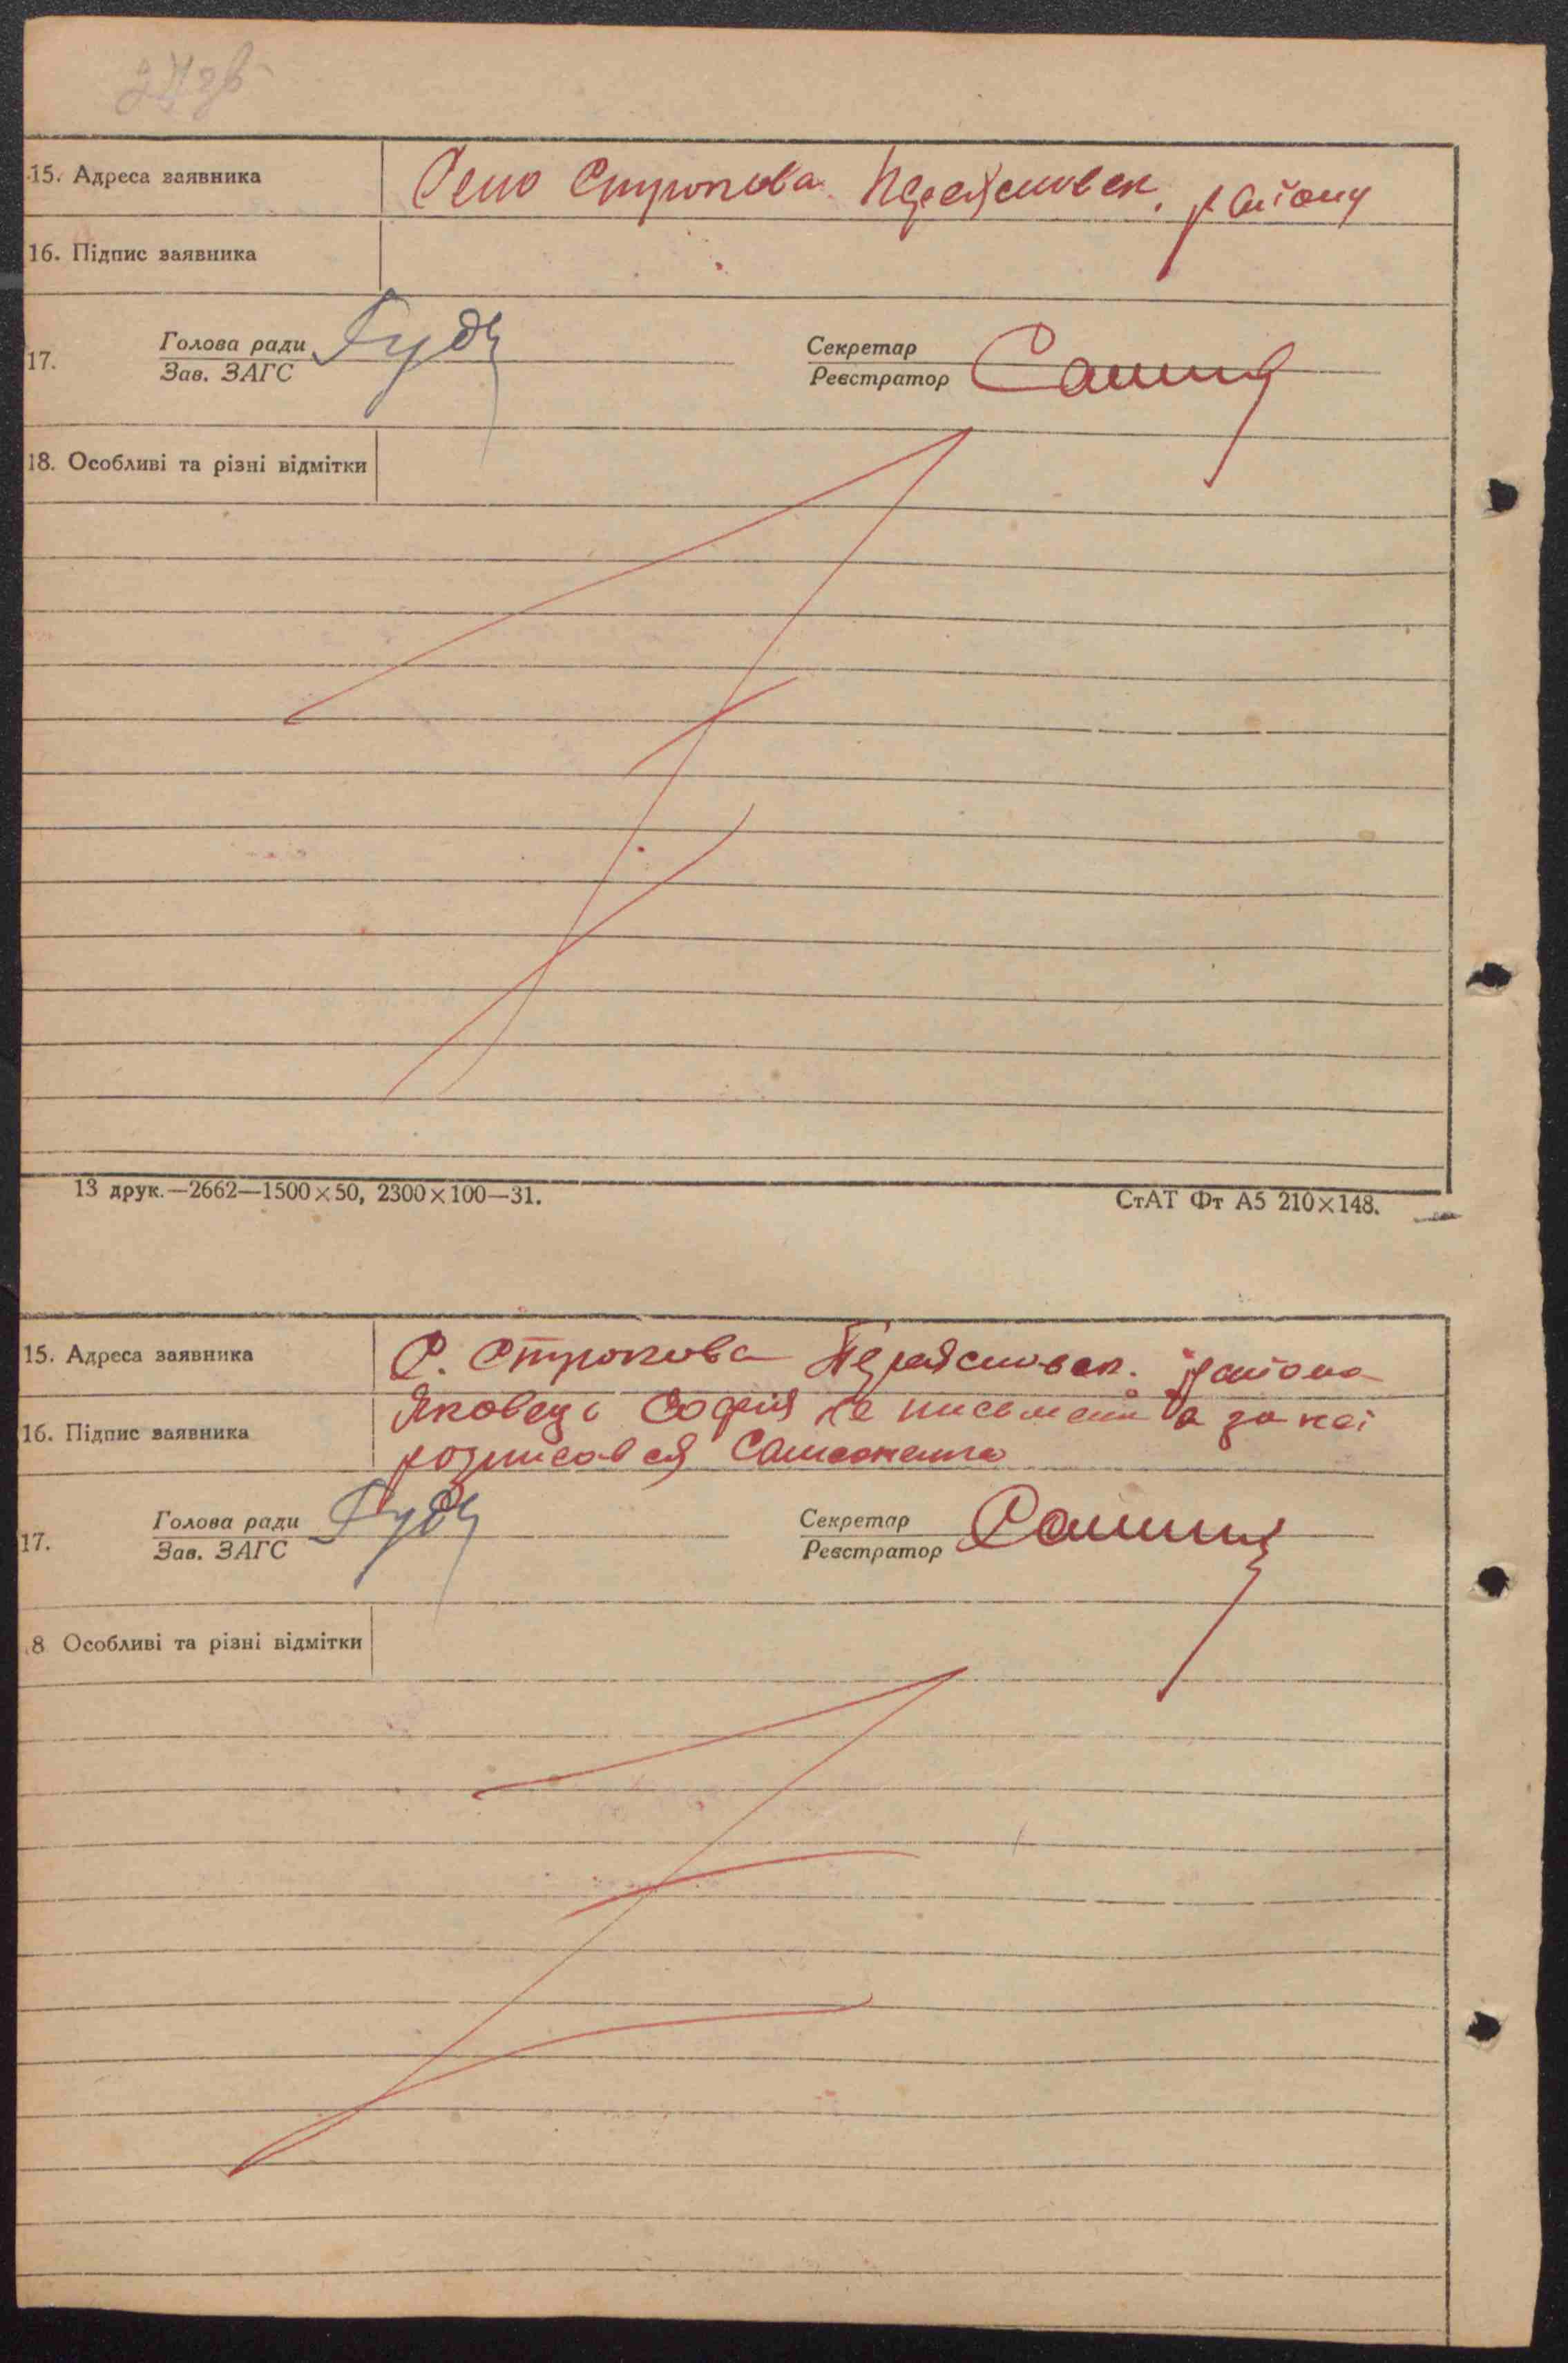 27 зв
15. Адреса заявника Село Строкова Переяславськ. району
16. Підпис заявника
17. Голова ради Гудз Секретар
Зав. ЗАГС Реєстратор
18. Особливі та різні відмітки
13 друк.—2662—1500×50, 2300×100—31. СтАТ Фт А5 210×148.
15. Адреса заявника С. Строкова Переясловск. району
Яковець Софія не письменна за неї
16. Підпис заявника
розписався Самоненко
17. Голова ради Гудз Секретар
Зав. ЗАГС Реєстратор
8 Особливі та різні відмітки